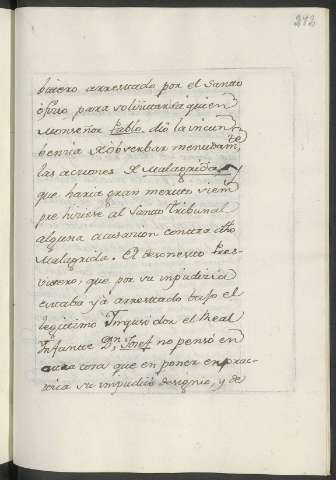 272
bitero arrestado por el Santo
oficio para solicitarsela quien
Monseñor Pablo dió la incum
bencia de observar menudamte
las acciones de Malagrida, y
que haria gran merito siem
pre hiciese al Santo Tribunal
alguna acusacion contra dho
Malagrida. El desonesto Pres-
vitero, que por su impudizia
estaba ya arrestado bajo el
legitimo Inquisidor el Real
Infante Dn. Josef no pensó en
otra cosa que en poner en prac-
tica su impudico designio, y de